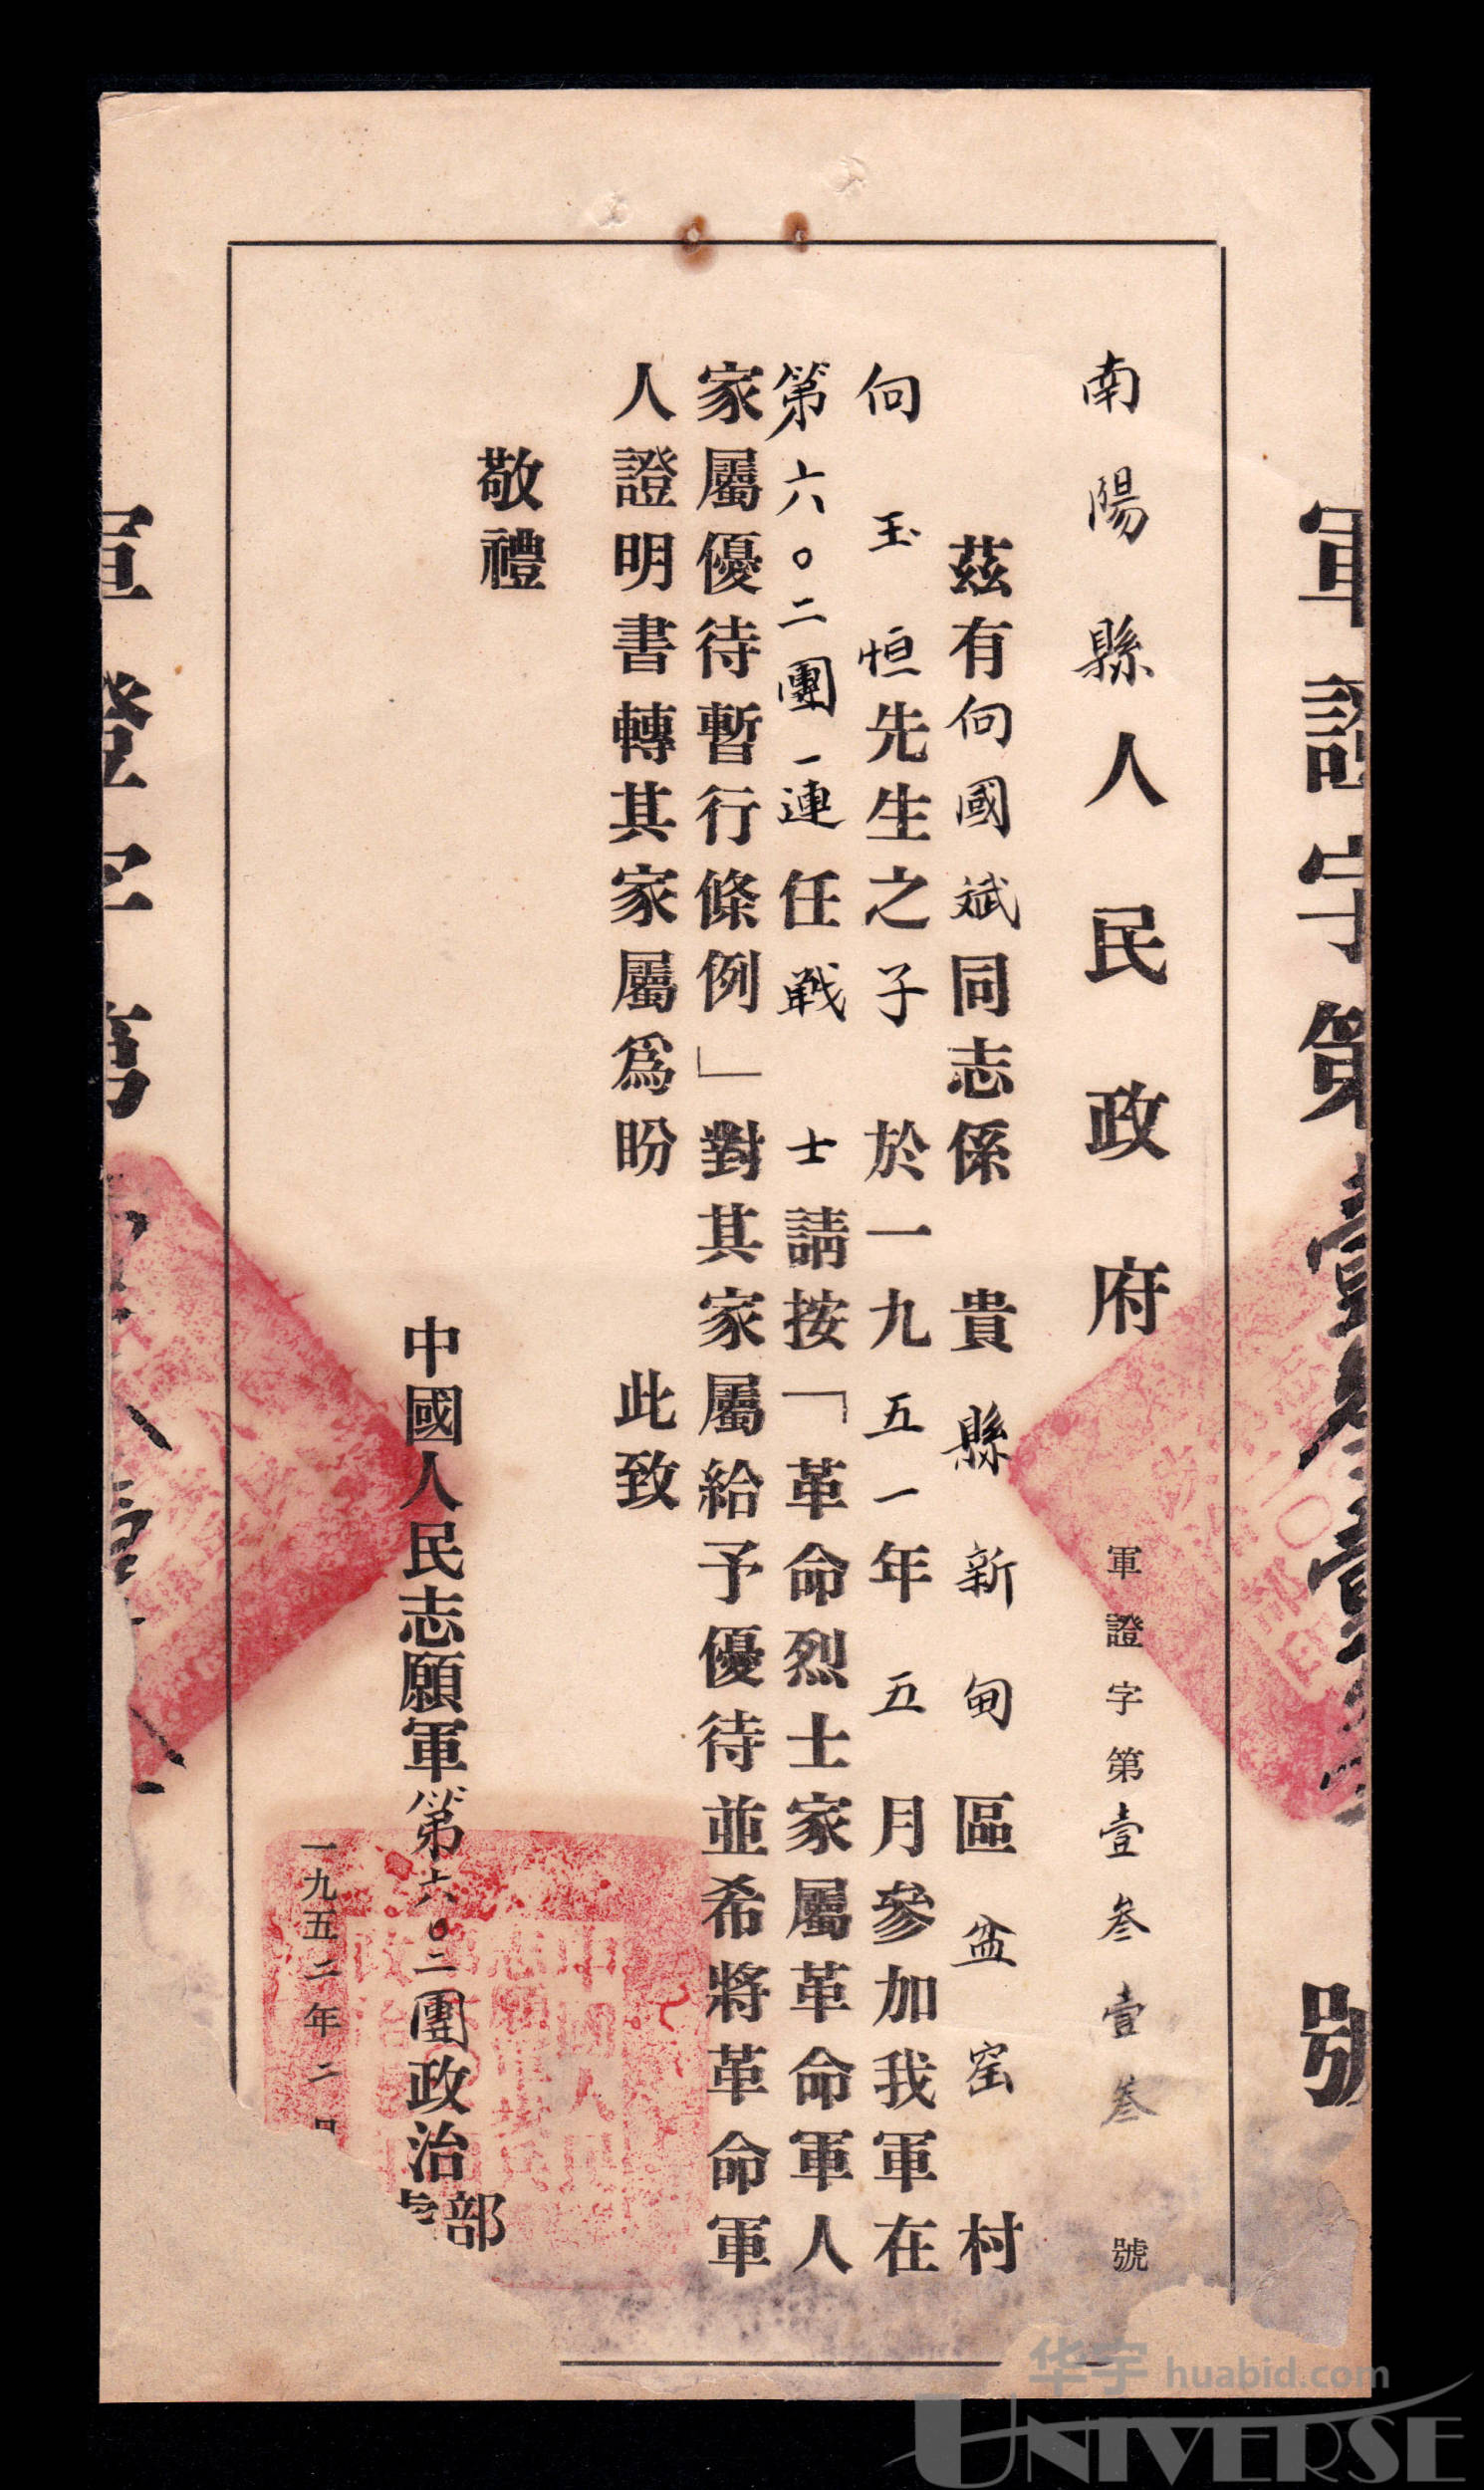 軍證字第
號
南陽縣人民政府
軍證字第壹叁壹叁號
茲有向國斌同志係　貴縣新甸區盆窑村
向玉恒先生之子　於一九五一年五月參加我軍在
第六〇二團一連任戰士請按「革命烈士家屬革命軍人
家屬優待暫行條例」對其家屬給予優待並希將革命軍
人證明書轉其家屬爲盼　此致
敬禮
中國人民志願軍第六〇二團政治部
一九五二年二
軍證字第
华宇 huabid.com
UNIVERSE